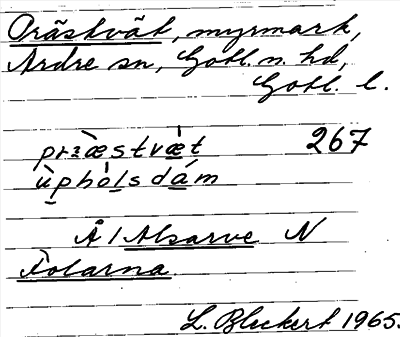 Präskvät, myrmark,
Ardre sn, Gotl. n. hd,
Gotl. l.
præstvæt 267
ùphòlsdám
Å / Alsarve N
Folarna
L. Bleckert 1965.